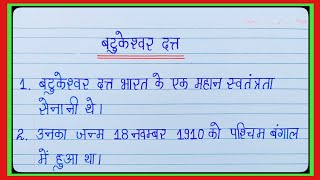 बटुकेश्वर दत्त
1. बटुकेश्वर दत्त भारत के एक महान स्वतंत्रता
सेनानी थे।
2. उनका जन्म 18 नवम्बर 1910 को पश्चिम बंगाल
में हुआ था।